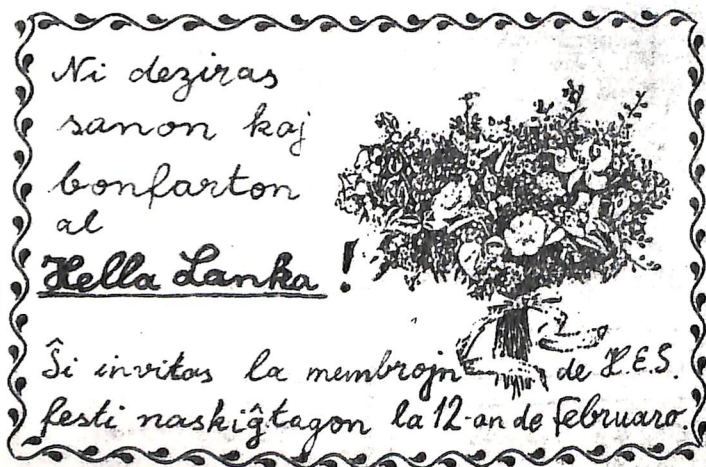 Ni deziras
sanon kaj
bonfarton
al
Hella Lanka!
Ŝi invitas la membrojn de H.E.S.
festi naskiĝtagon la 12-an de februaro.